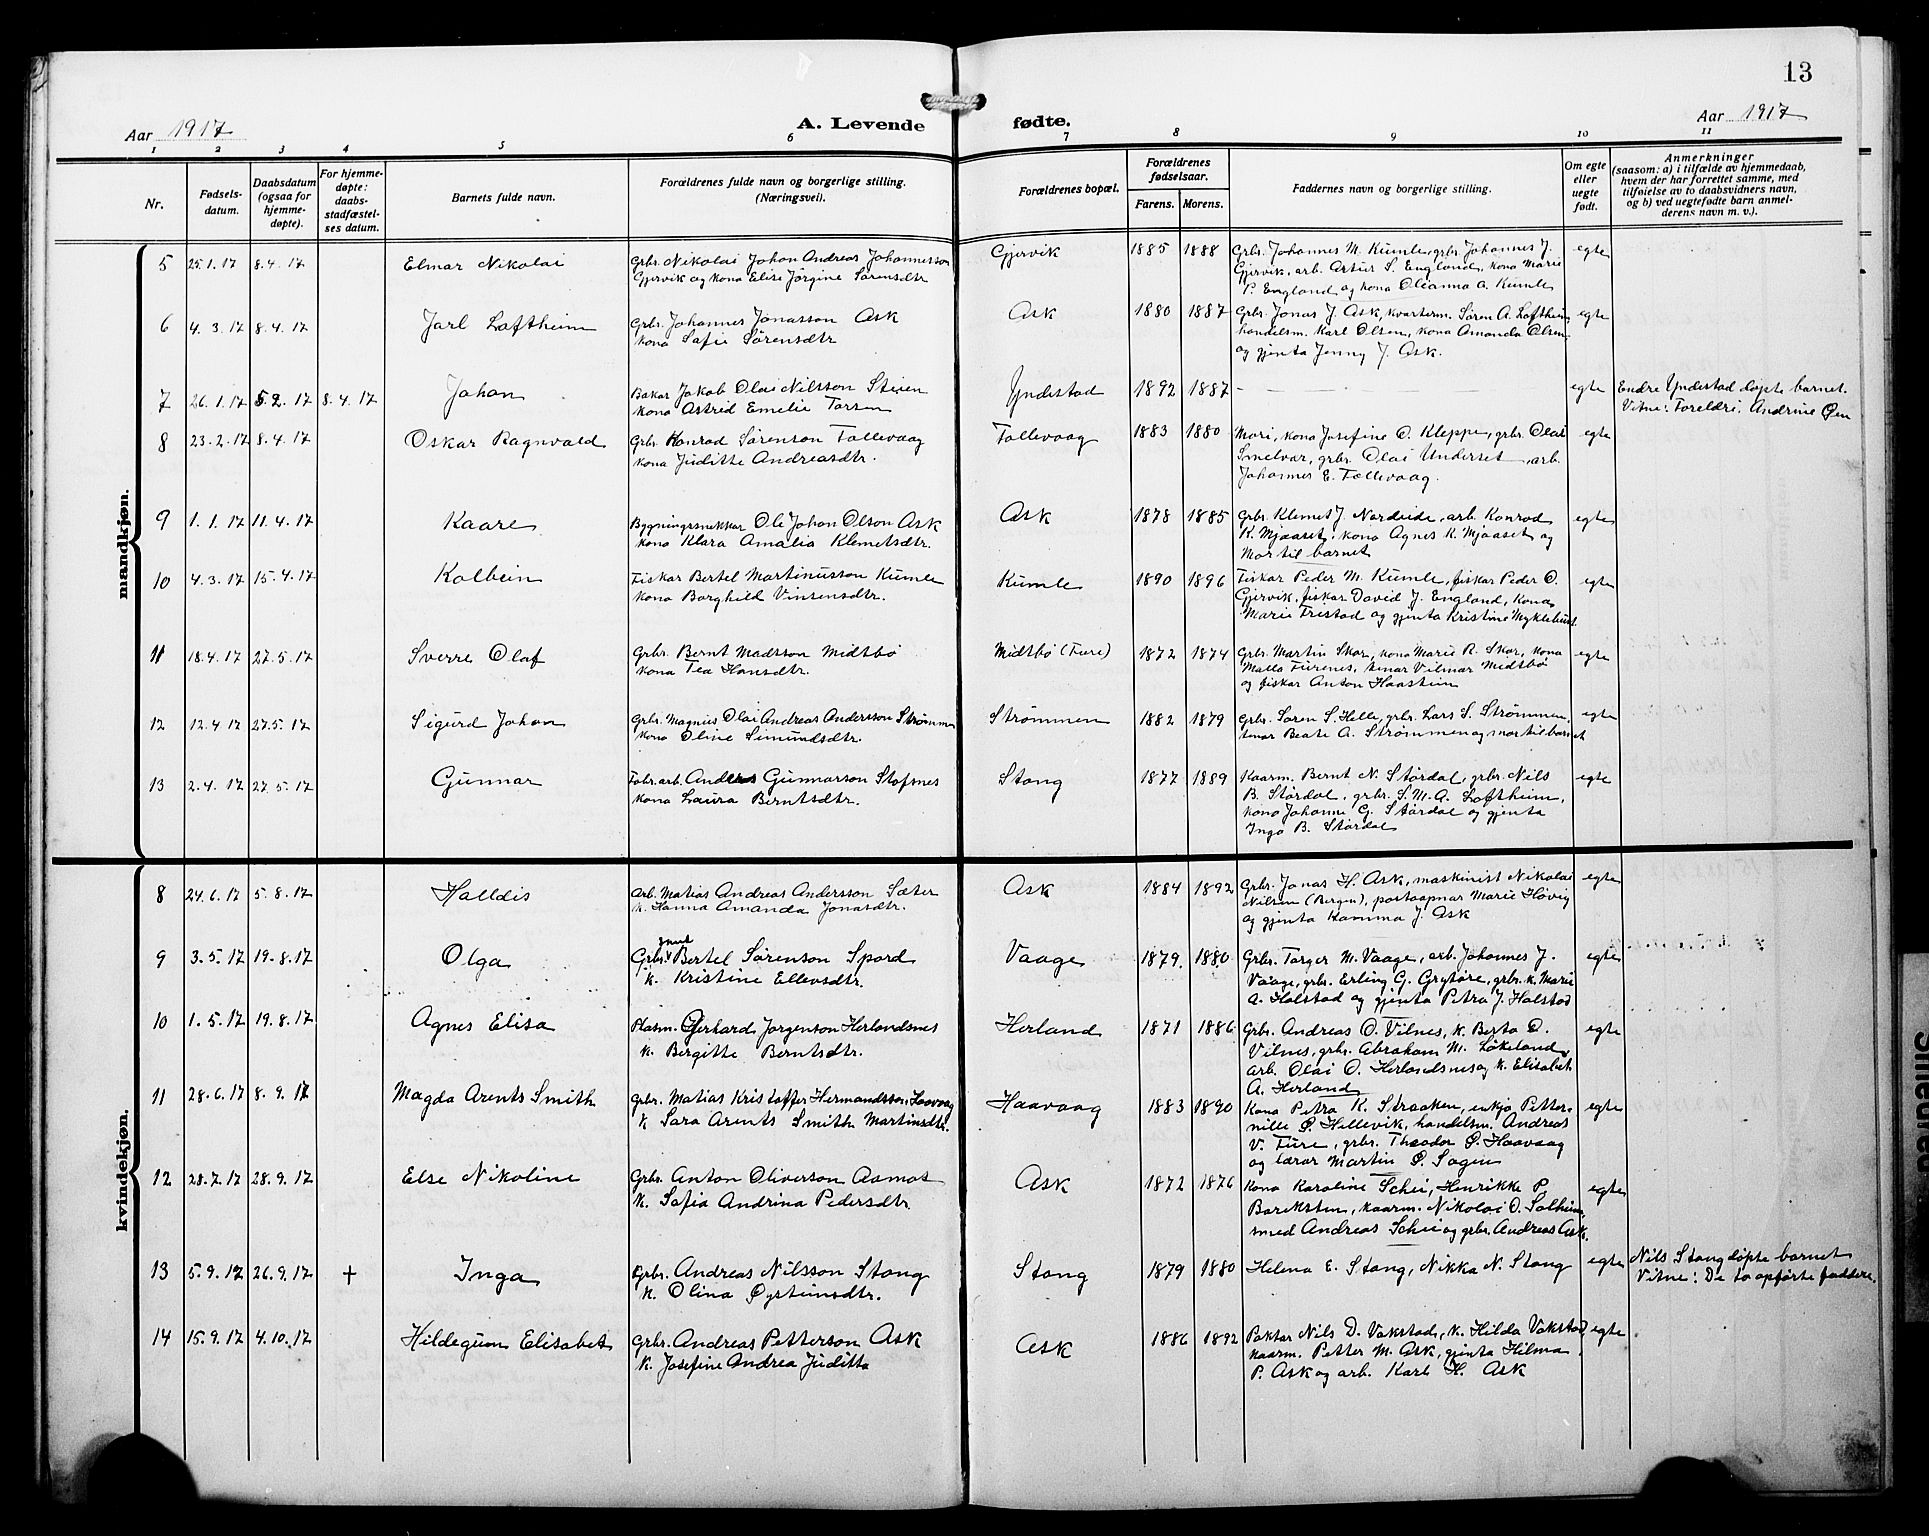 13
Aar 1917
A. Levende fødte.
Aar 1917
1 2 3 4 5 6 7 8 9 10 11
Nr.
Fødsels-
datum.
Daabsdatum
(ogsaa for
hjemme-
døpte).
For hjemme-
døpte:
daabs-
stadfæstel-
ses datum.
Barnets fulde navn.
Forældrenes fulde navn og borgerlige stilling.
(Næringsvei).
Forældrenes bopæl.
Forældrenes
fødselsaar.
Farens. Morens.
Faddernes navn og borgerlige stilling.
Om egte
eller
uegte
født.
Anmerkninger
(saasom: a) i tilfælde av hjemmedaab,
hvem der har forrettet samme, med
tilføielse av to daabsvidners navn,
og b) ved uegtefødte barn anmel-
derens navn m. v.).
mandkjøn.
5 25.1.17 8.4.17 Elmar Nikolai
Grbr. Nikolai Johan Andreas Johannesson
Gjervik og kona Elise Jørgine Sørensdtr
Gjervik 1885 1888
Grbr. Johannes M. Kumle, grbr. Johannes J.
Gjervik, arb. Artur S. England, kona Marie
P. England og kona Olianna A. Kumle
egte
6 4.3.17 8.4.17 Jarl Loftheim
Grbr. Johannes Jonasson Ask
kona Safie Sørensdtr
Ask 1880 1887
Grbr. Jonas J. Ask, kvarterm. Søren A. Loftheim,
handelsm. Karl Olsen, kona Amanda Olsen
og gjenta Jenny J. Ask.
egte
7 26.1.17 5.2.17 8.4.17 Johan
Bakar Jakob Olai Nilsson Steien
kona Astrid Emelie Torsen
Yndestad 1892 1887
egte
Endre Yndestad døpte barnet.
Vitne: Foreldri. Andrine Øen
8 23.2.17 8.4.17 Oskar Ragnvald
Grbr. Konrad Sørenson Tollevaag
kona Juditte Andreasdtr.
Tollevaag 1883 1880
Mori, kona Josefine O. Kleppe, grbr. Olai
Smelvar, grbr. Olai Underset, arb.
Johannes E. Tollevaag.
egte
9 1.1.17 11.4.17 Kaare
Bygningssnekkar Ole Johan Olson Ask
kona Klara Amalia Klemetsdtr.
Ask 1878 1885
Grbr. Klemet J. Nordeide, arb. Konrad
K. Mjaaset, kona Agnes K. Mjaaset og
Mor til barnet
egte
10 4.3.17 15.4.17 Kolbein
Fiskar Bertel Martinusson Kumle
kona Borghild Vinsensdtr.
Kumle 1890 1896
Fiskar Peder M. Kumle, fiskar Peder O.
Gjervik, fiskar David J. England, kona
Marie Tristad og gjenta Kristine Myklebust
egte
11 18.4.17 27.5.17 Sverre Olaf
Grbr. Bernt Madsson Midtbø
kona Tea Hansdtr.
Midtbø (Fure) 1872 1874
Grbr. Martin Skor, kona Marie R. Skor, kona
Malla Furenes, tenar Vilmar Midtbø
og fiskar Anton Haastein
egte
12 12.4.17 27.5.17 Sigurd Johan
Grbr. Magnus Olai Andreas Andersson Strømmen
kona Oline Simundsdtr.
Strømmen 1882 1879
Grbr. Søren S. Helle, grbr. Lars S. Strømmen,
tenar Beate A. Strømmen og mor til barnet
egte
13 2.4.17 27.5.17 Gunnar
Fabr. arb. Anders Gunnarson Stofnes
kona Laura Berntsdtr.
Stang 1877 1889
Kaarm. Bernt N. Størdal, grbr. Nils
B. Størdal, grbr. S. M. A. Loftheim,
kona Johanne G. Størdal og gjenta
Inga B. Størdal
egte
kvindekjøn.
8 24.6.17 5.8.17 Halldis
Arb. Matias Andreas Andersson Sæter
k. Hanna Amanda Jonasdtr.
Ask 1884 1892
Grbr. Jonas H. Ask, maskinist Nikolai
Nilsen (Bergen), postaapnar Marie Høvig
og gjenta Kamma J. Ask
egte
9 3.5.17 19.8.17 Olga
Grbr. Bertel Sørenson Spord
k. Kristine Ellevsdtr.
Vaage 1879. 1880
Grbr. Torger M. Vaage, arb. Johannes J.
Vaage, grbr. Erling G. Grytøre, grbr. k. Marie
A. Holstad og gjenta Petra J. Holstad
egte
10 1.5.17 19.8.17 Agnes Elisa
Plasm. Gerhard Jørgenson Herlandsnes
k. Bergitte Berntsdtr.
Herland 1871 1886
Grbr. Andreas O. Vilnes, k. Berta O.
Vilnes, grbr. Abraham M. Løkeland,
arb. Olai O. Herlandsnes og k. Elisabet
A. Herland
egte
11 28.6.17 8.9.17 Magda Arents Smith
Grbr. Matias Kristoffer Hermandsson Haavaag
k. Sara Arents Smith Martinsdtr.
Haavaag 1883 1890
Kona Petra K. Straaken, enkja Petter-
nille P. Hellevik, handelsm. Andreas
V. Fure, grbr. Theodor P. Haavaag
og lærar Martin P. Sagen
egte
12 28.7.17 28.9.17 Else Nikoline
Grbr. Anton Oliverson Aamot
k. Safia Andrina Pedersdtr.
Ask 1872 1876
Kona Karoline Schei, Henrikke P.
Bareksten, kaarm. Nikolai O. Solheim,
smed Andreas Schei og grbr. Andreas Ask.
egte
13 5.9.17 26.9.17 + Inga
Grbr. Andreas Nilsson Stang
k. Olina Øysteinsdtr.
Stang 1879 1880
Helena E. Stang, Nikka N. Stang
egte
Nils Stang døpte barnet
Vitne: De to opførte faddere.
14 15.9.17 4.10.17 Hildegunn Elisabet
Grbr. Andreas Petterson Ask
k. Josefine Andrea Juditta
Ask 1886 1892
Paktar Nils D. Vakstad, k. Hilda Vakstad,
kaarm. Petter M. Ask, gjenta Hilma
P. Ask og arb. Karl H. Ask
egte